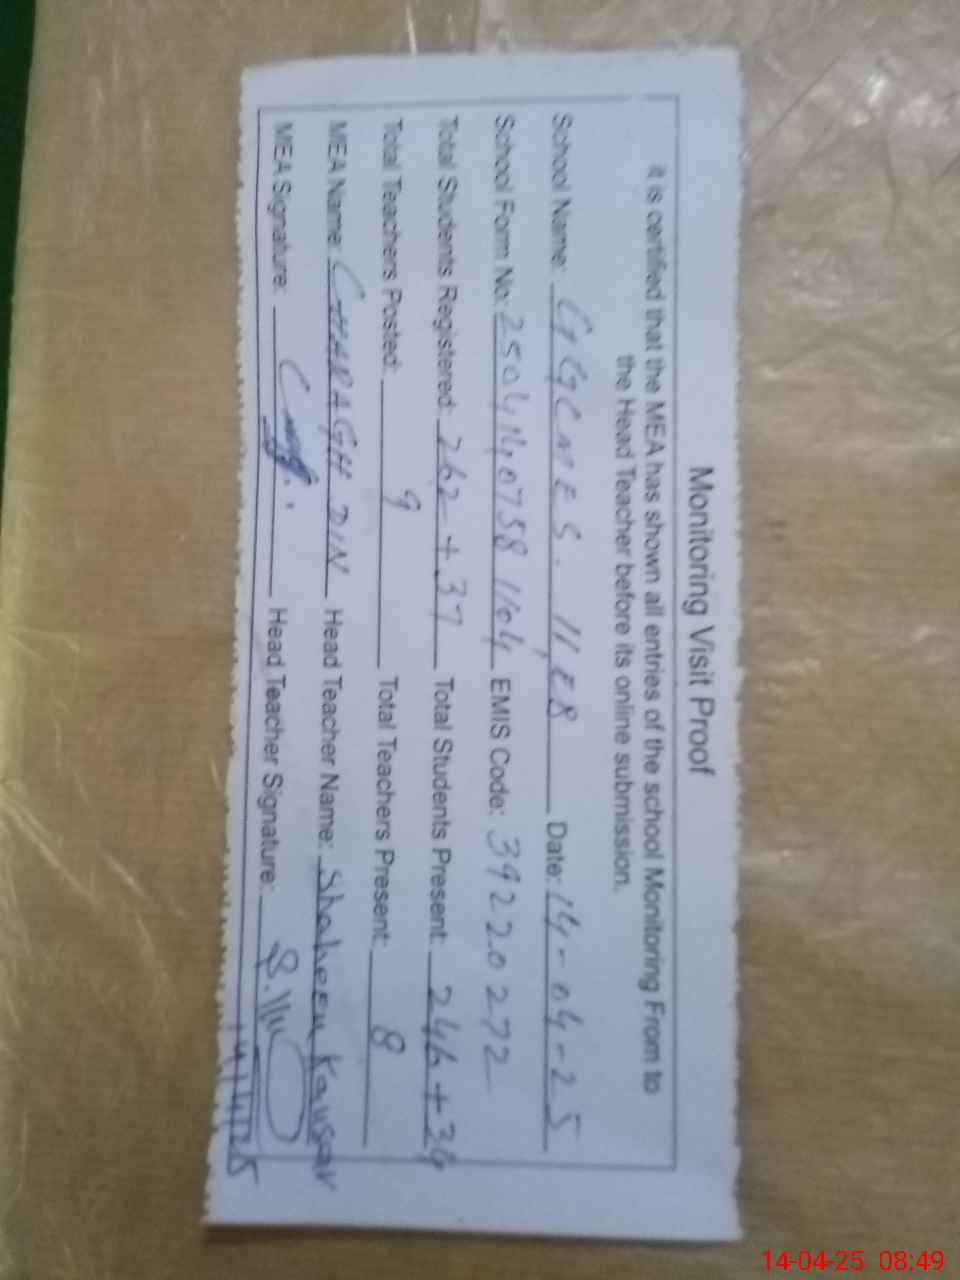 Monitoring Visit Proof
it is certified that the MEA has shown all entries of the school Monitoring From to
the Head Teacher before its online submission.
School Name: GGCMES. 11/EB Date: 14-04-25
School Form No: 25041407581104 EMIS Code: 39220272
Total Students Registered: 262 + 37 Total Students Present: 246 + 34
Total Teachers Posted: 9 Total Teachers Present: 8
MEA Name: CHARAGH DIN Head Teacher Name: Shaheen Kausar
MEA Signature: Head Teacher Signature:
14/4/25
14-04-25 08:49